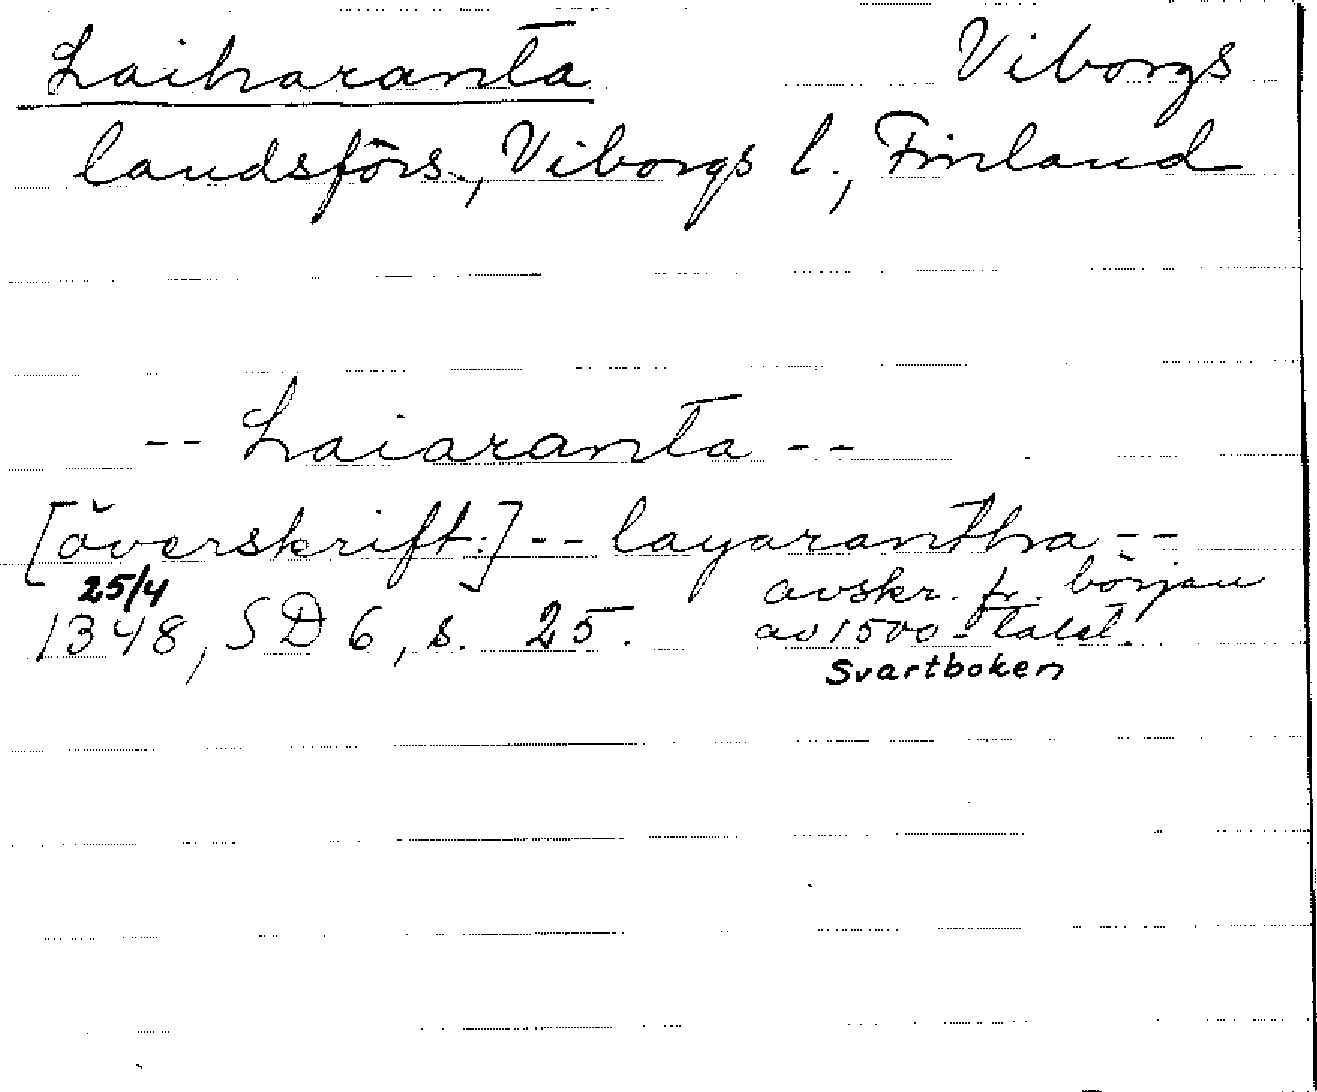 Laiharanta Viborgs
landsförs., Viborgs l., Finland
-- Laiaranta --
[överskrift:] -- layarantha --
25/4 avskr. fr. början
1348, SD 6, s. 25. av 1500-talet.
Svartboken